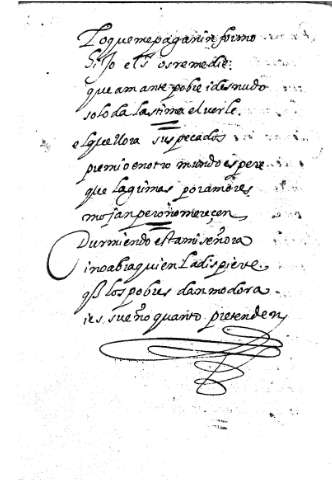 Lo que me pagan informo
si Io el os remedie
que amante pobre i desnudo
solo da lastima el verle.
el que llora sus pecados
premio en otro mundo espere
que lagrimas por amores
mojan pero no mereçen
Durmiendo esta mi señora
i no abra quien la dispierte.
q los pobres dan modora
i es sueño quanto pretenden